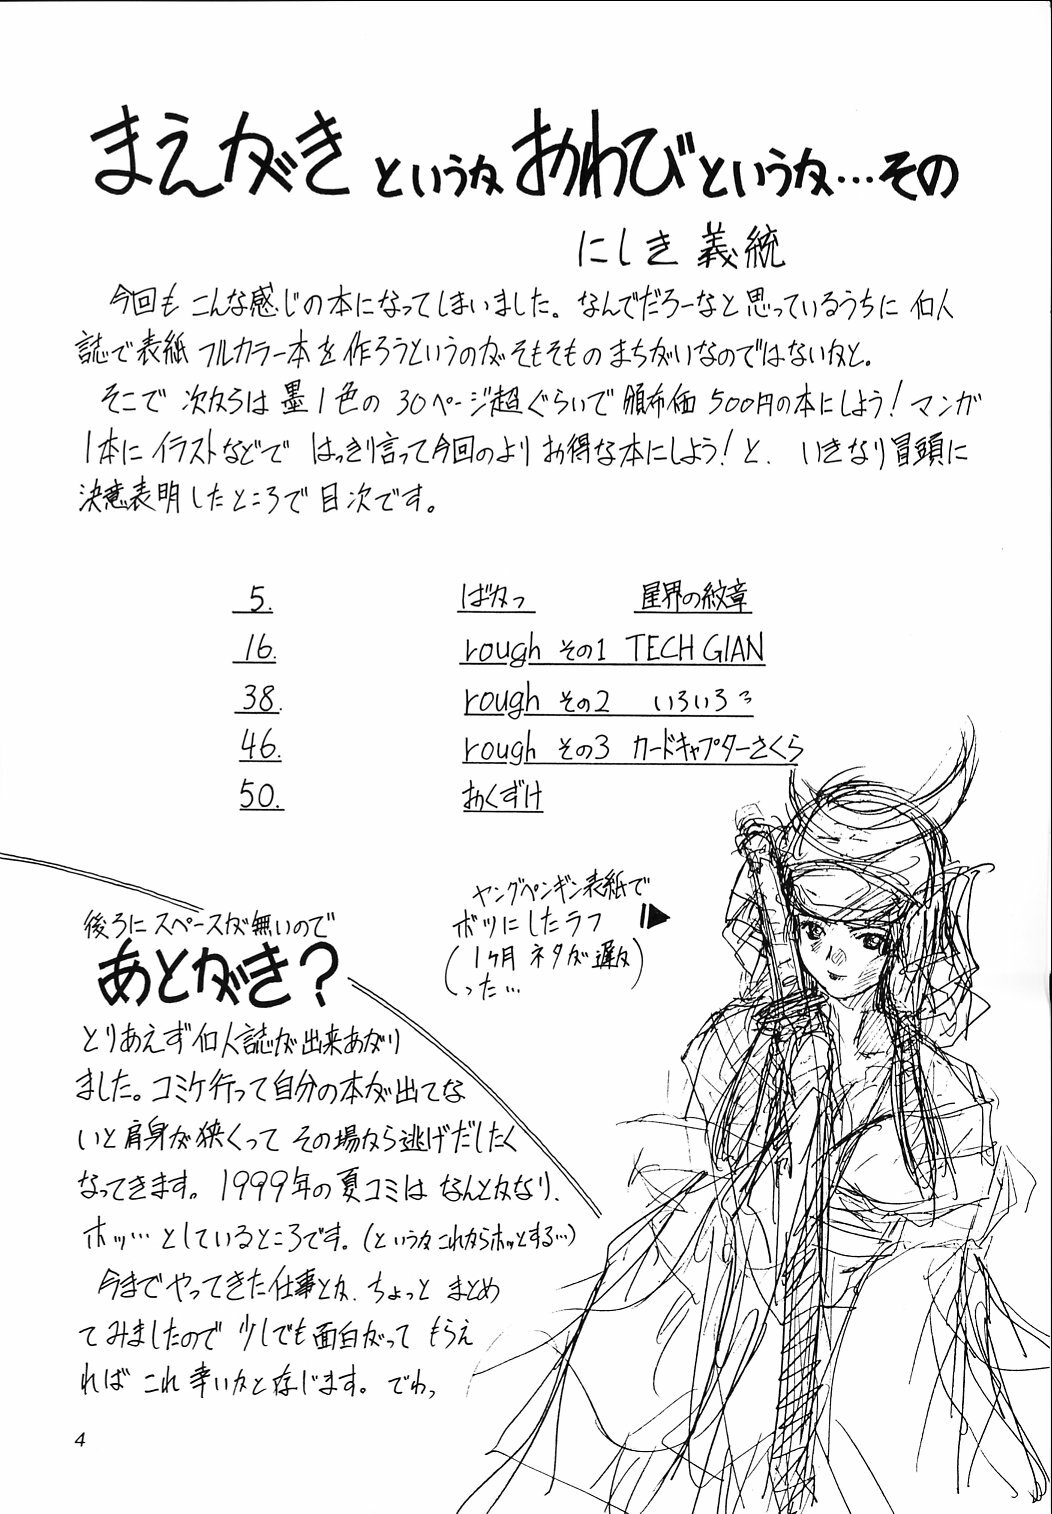 まえがきというかおわびというか…その
にしき義統
今回もこんな感じの本になってしまいました。なんでだろーなと思っているうちに同人
誌で表紙フルカラー本を作ろうというのがそもそものまちがいなのではないかと。
そこで次からは墨1色の30ページ超ぐらいで頒布価500円の本にしよう!マンガ
1本にイラストなどではっきり言って今回のよりお得な本にしよう!と、いきなり冒頭に
決意表明したところで目次です。
5. ばかっ 星界の紋章
16. rough その1 TECH GIAN
38. rough その2 いろいろ
46. rough その3 カードキャプターさくら
50. おくずけ
ヤングペンギン表紙で
ボツにしたラフ
(1ヶ月ネタが遅か)
った…
後ろにスペースが無いので
あとがき?
とりあえず同人誌が出来あがり
ました。コミケ行って自分の本が出てな
いと肩身が狭くってその場から逃げだしたく
なってきます。1999年の夏コミはなんとかなり、
ホッ…としているところです。(というかこれからホッとする…)
今までやってきた仕事とか、ちょっとまとめ
てみましたので少しでも面白がってもらえ
ればこれ幸いかと存じます。でわっ
4